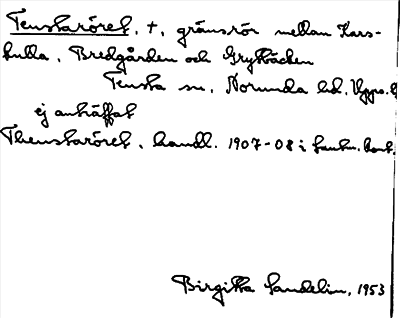 Tenstaröret, +, gränsrör mellan Kars-
hulla, Bredgården och Grytbäcken
Tensta sn, Norunda hd, Upps. l
ej anträffat
Thenstaröret, handl. 1907-08 i Lantm. kont.
Birgitta Sandelin, 1953